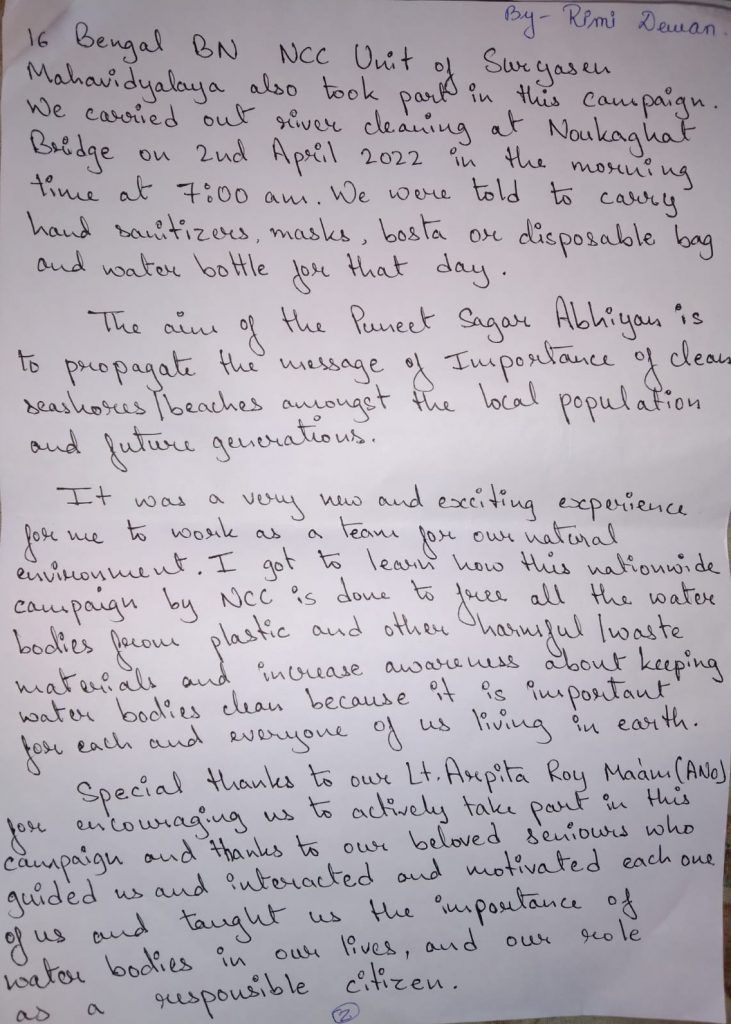 By - Rimi Dewan.
16 Bengal BN NCC Unit of Suryasen
Mahavidyalaya also took part in this campaign.
We carried out river cleaning at Noukaghat
Bridge on 2nd April 2022 in the morning
time at 7:00 am. We were told to carry
hand sanitizers, masks, bosta or disposable bag
and water bottle for that day.
The aim of the Puneet Sagar Abhiyan is
to propagate the message of Importance of clean
seashores/beaches amongst the local population
and future generations.
It was a very new and exciting experience
for me to work as a team for our natural
environment. I got to learn how this nationwide
campaign by NCC is done to free all the water
bodies from plastic and other harmful/waste
materials and increase awareness about keeping
water bodies clean because it is important
for each and everyone of us living in earth.
Special thanks to our Lt. Arpita Roy Maàm (ANO)
for encouraging us to actively take part in this
campaign and thanks to our beloved seniours who
guided us and interacted and motivated each one
of us and taught us the importance of
water bodies in our lives, and our role
as a responsible citizen.
2